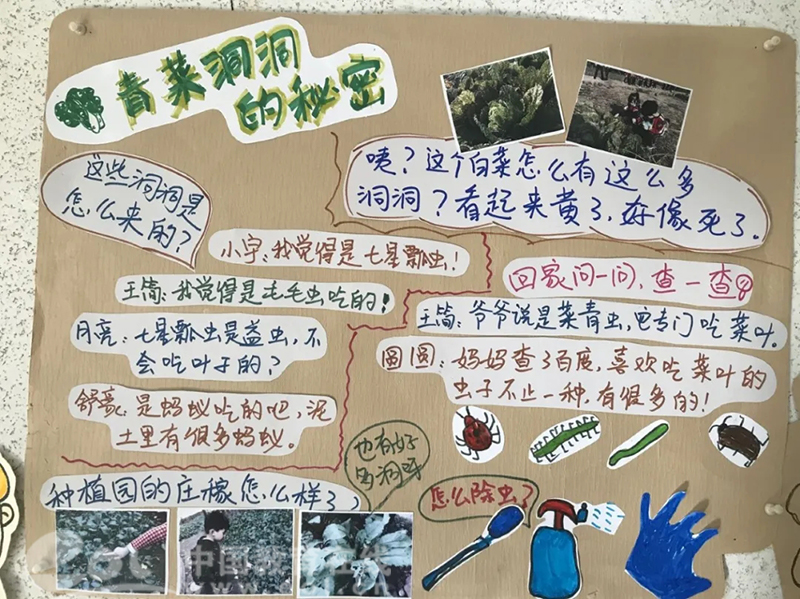 青菜洞洞
的秘密
咦?这个白菜怎么有这么多
洞洞?看起来黄了,好像死了.
这些洞洞是
怎么来的?
小宇:我觉得是七星瓢虫!
王简:我觉得是毛毛虫吃的!
月亮:七星瓢虫是益虫,不
会吃叶子的?
舒豪:是蚂蚁吃的吧,泥
土里有很多蚂蚁。
回家问一问,查一查
王简:爷爷说是菜青虫,它专门吃菜叶.
圆圆:妈妈查了百度,喜欢吃菜叶的
虫子不止一种,有很多的!
种植园的庄稼怎么样了
也有好
多洞呀
怎么除虫了
中国教育在线